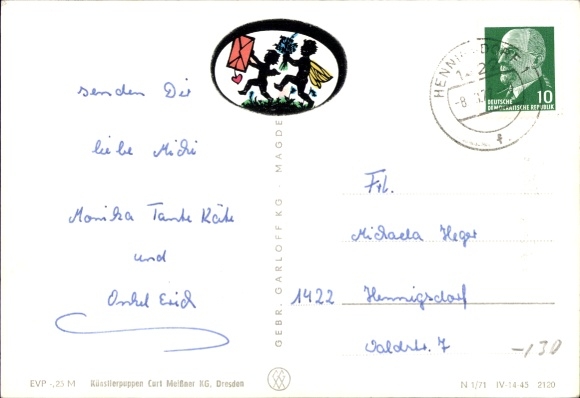 senden Dir
liebe Michi
Monika Tante Käte
und
Onkel Erich
GEBR. GARLOFF KG · MAGDE
HENNIGSDORF
-8.
10
DEUTSCHE
DEMOKRATISCHE REPUBLIK
Frl.
Michaela Heger
1422 Hennigsdorf
Waldstr. 7
-130
EVP -,25 M Künstlerpuppen Curt Meißner KG, Dresden
N 1/71 IV-14-45 2120